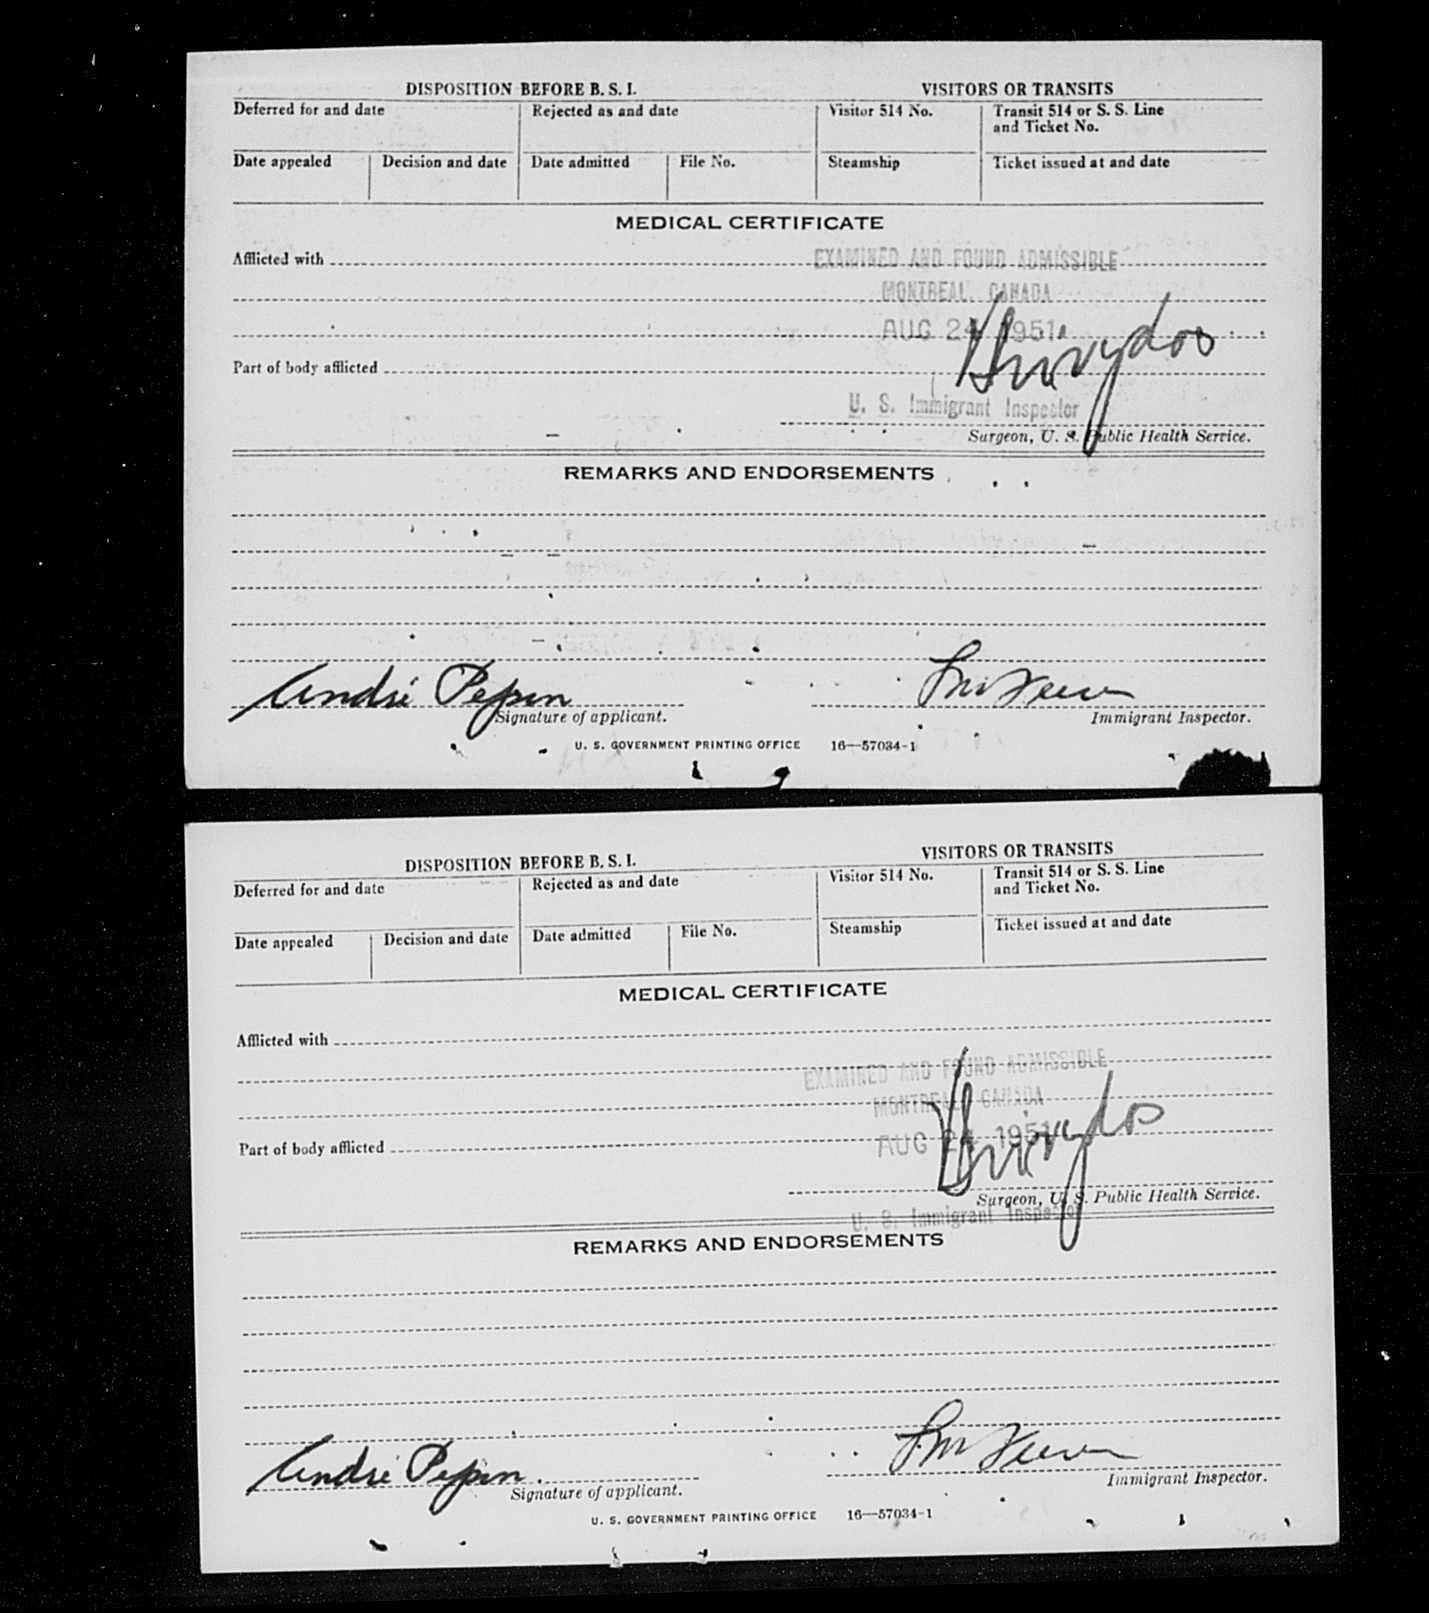 DISPOSITION BEFORE B. S. I. VISITORS OR TRANSITS
Deferred for and date Rejected as and date Visitor 514 No. Transit 514 or S. S. Line
and Ticket No.
Date appealed Decision and date Date admitted File No. Steamship Ticket issued at and date
MEDICAL CERTIFICATE
Afflicted with EXAMINED AND FOUND ADMISSIBLE
MONTREAL, CANADA
AUG 24 1951
Part of body afflicted
U. S. Immigrant Inspector
Surgeon, U. S. Public Health Service.
REMARKS AND ENDORSEMENTS
André Pepin
Signature of applicant. Immigrant Inspector.
U. S. GOVERNMENT PRINTING OFFICE 16—57034-1
DISPOSITION BEFORE B. S. I. VISITORS OR TRANSITS
Deferred for and date Rejected as and date Visitor 514 No. Transit 514 or S. S. Line
and Ticket No.
Date appealed Decision and date Date admitted File No. Steamship Ticket issued at and date
MEDICAL CERTIFICATE
Afflicted with
EXAMINED AND FOUND ADMISSIBLE
MONTREAL, CANADA
Part of body afflicted AUG 24 1951
Surgeon, U. S. Public Health Service.
U. S. Immigrant Inspector
REMARKS AND ENDORSEMENTS
André Pepin.
Signature of applicant. Immigrant Inspector.
U. S. GOVERNMENT PRINTING OFFICE 16—57034-1